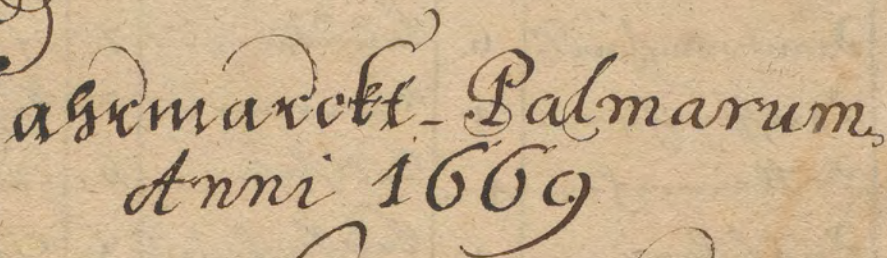 Jahrmarckt_ Palmarum.
Anni 1669